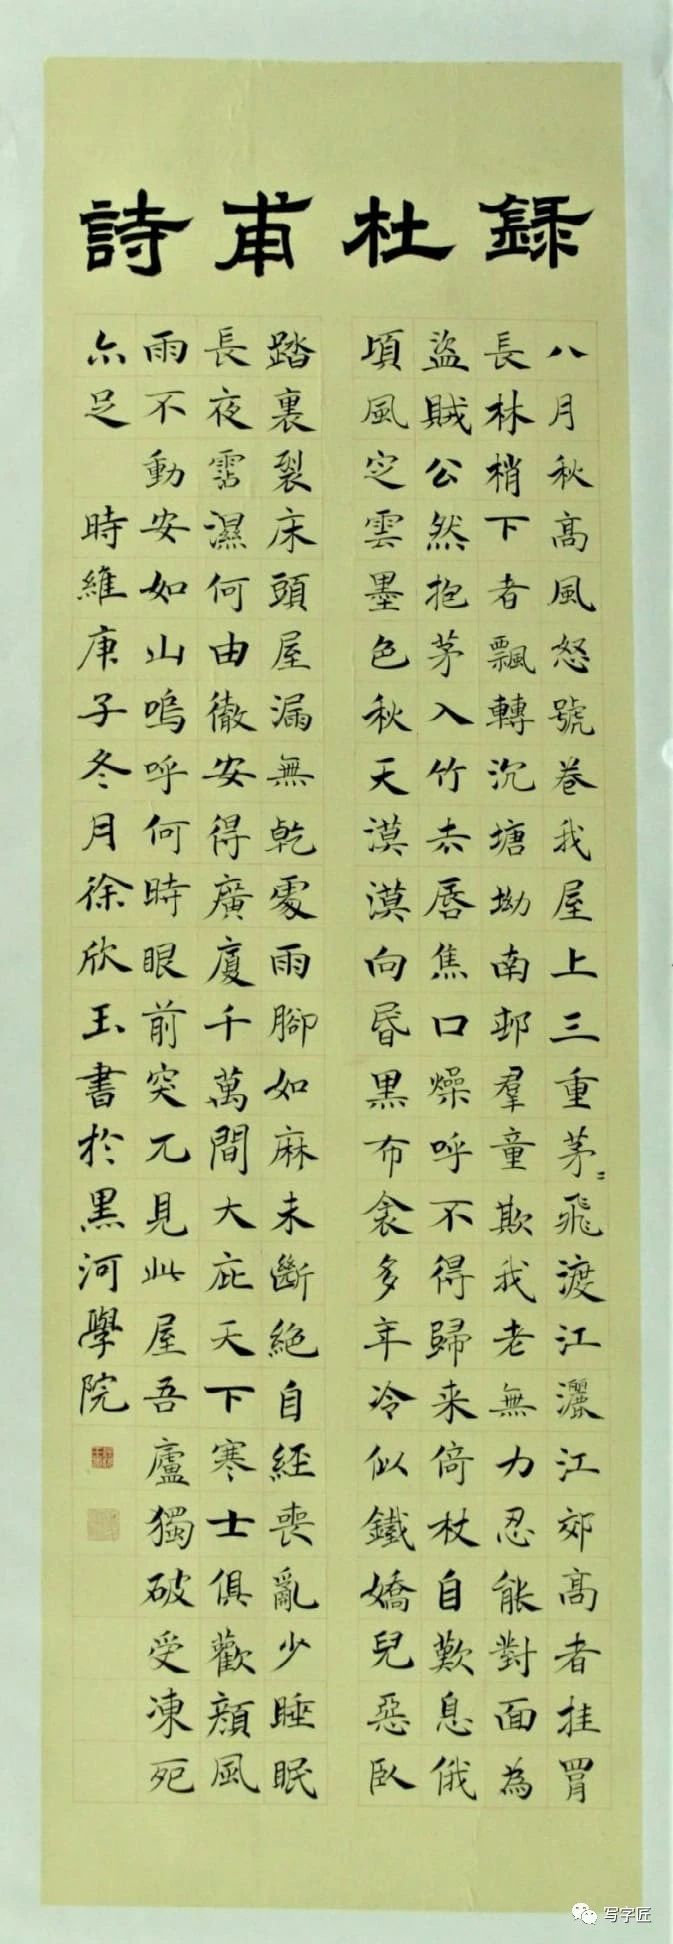 錄杜甫詩
八月秋高風怒號卷我屋上三重茅〻飛渡江灑江郊高者挂罥
長林梢下者飄轉沉塘坳南邨羣童欺我老無力忍能對面為
盜賊公然抱茅入竹去唇焦口燥呼不得歸来倚杖自歎息俄
頃風定雲墨色秋天漠漠向昏黑布衾多年冷似鐵嬌兒惡臥
踏裏裂床頭屋漏無乾處雨腳如麻未斷絕自經喪亂少睡眠
長夜霑濕何由徹安得廣廈千萬間大庇天下寒士俱歡顏風
雨不動安如山嗚呼何時眼前突兀見此屋吾廬獨破受凍死
亦足 時維庚子冬月徐欣玉書於黑河學院
写字匠